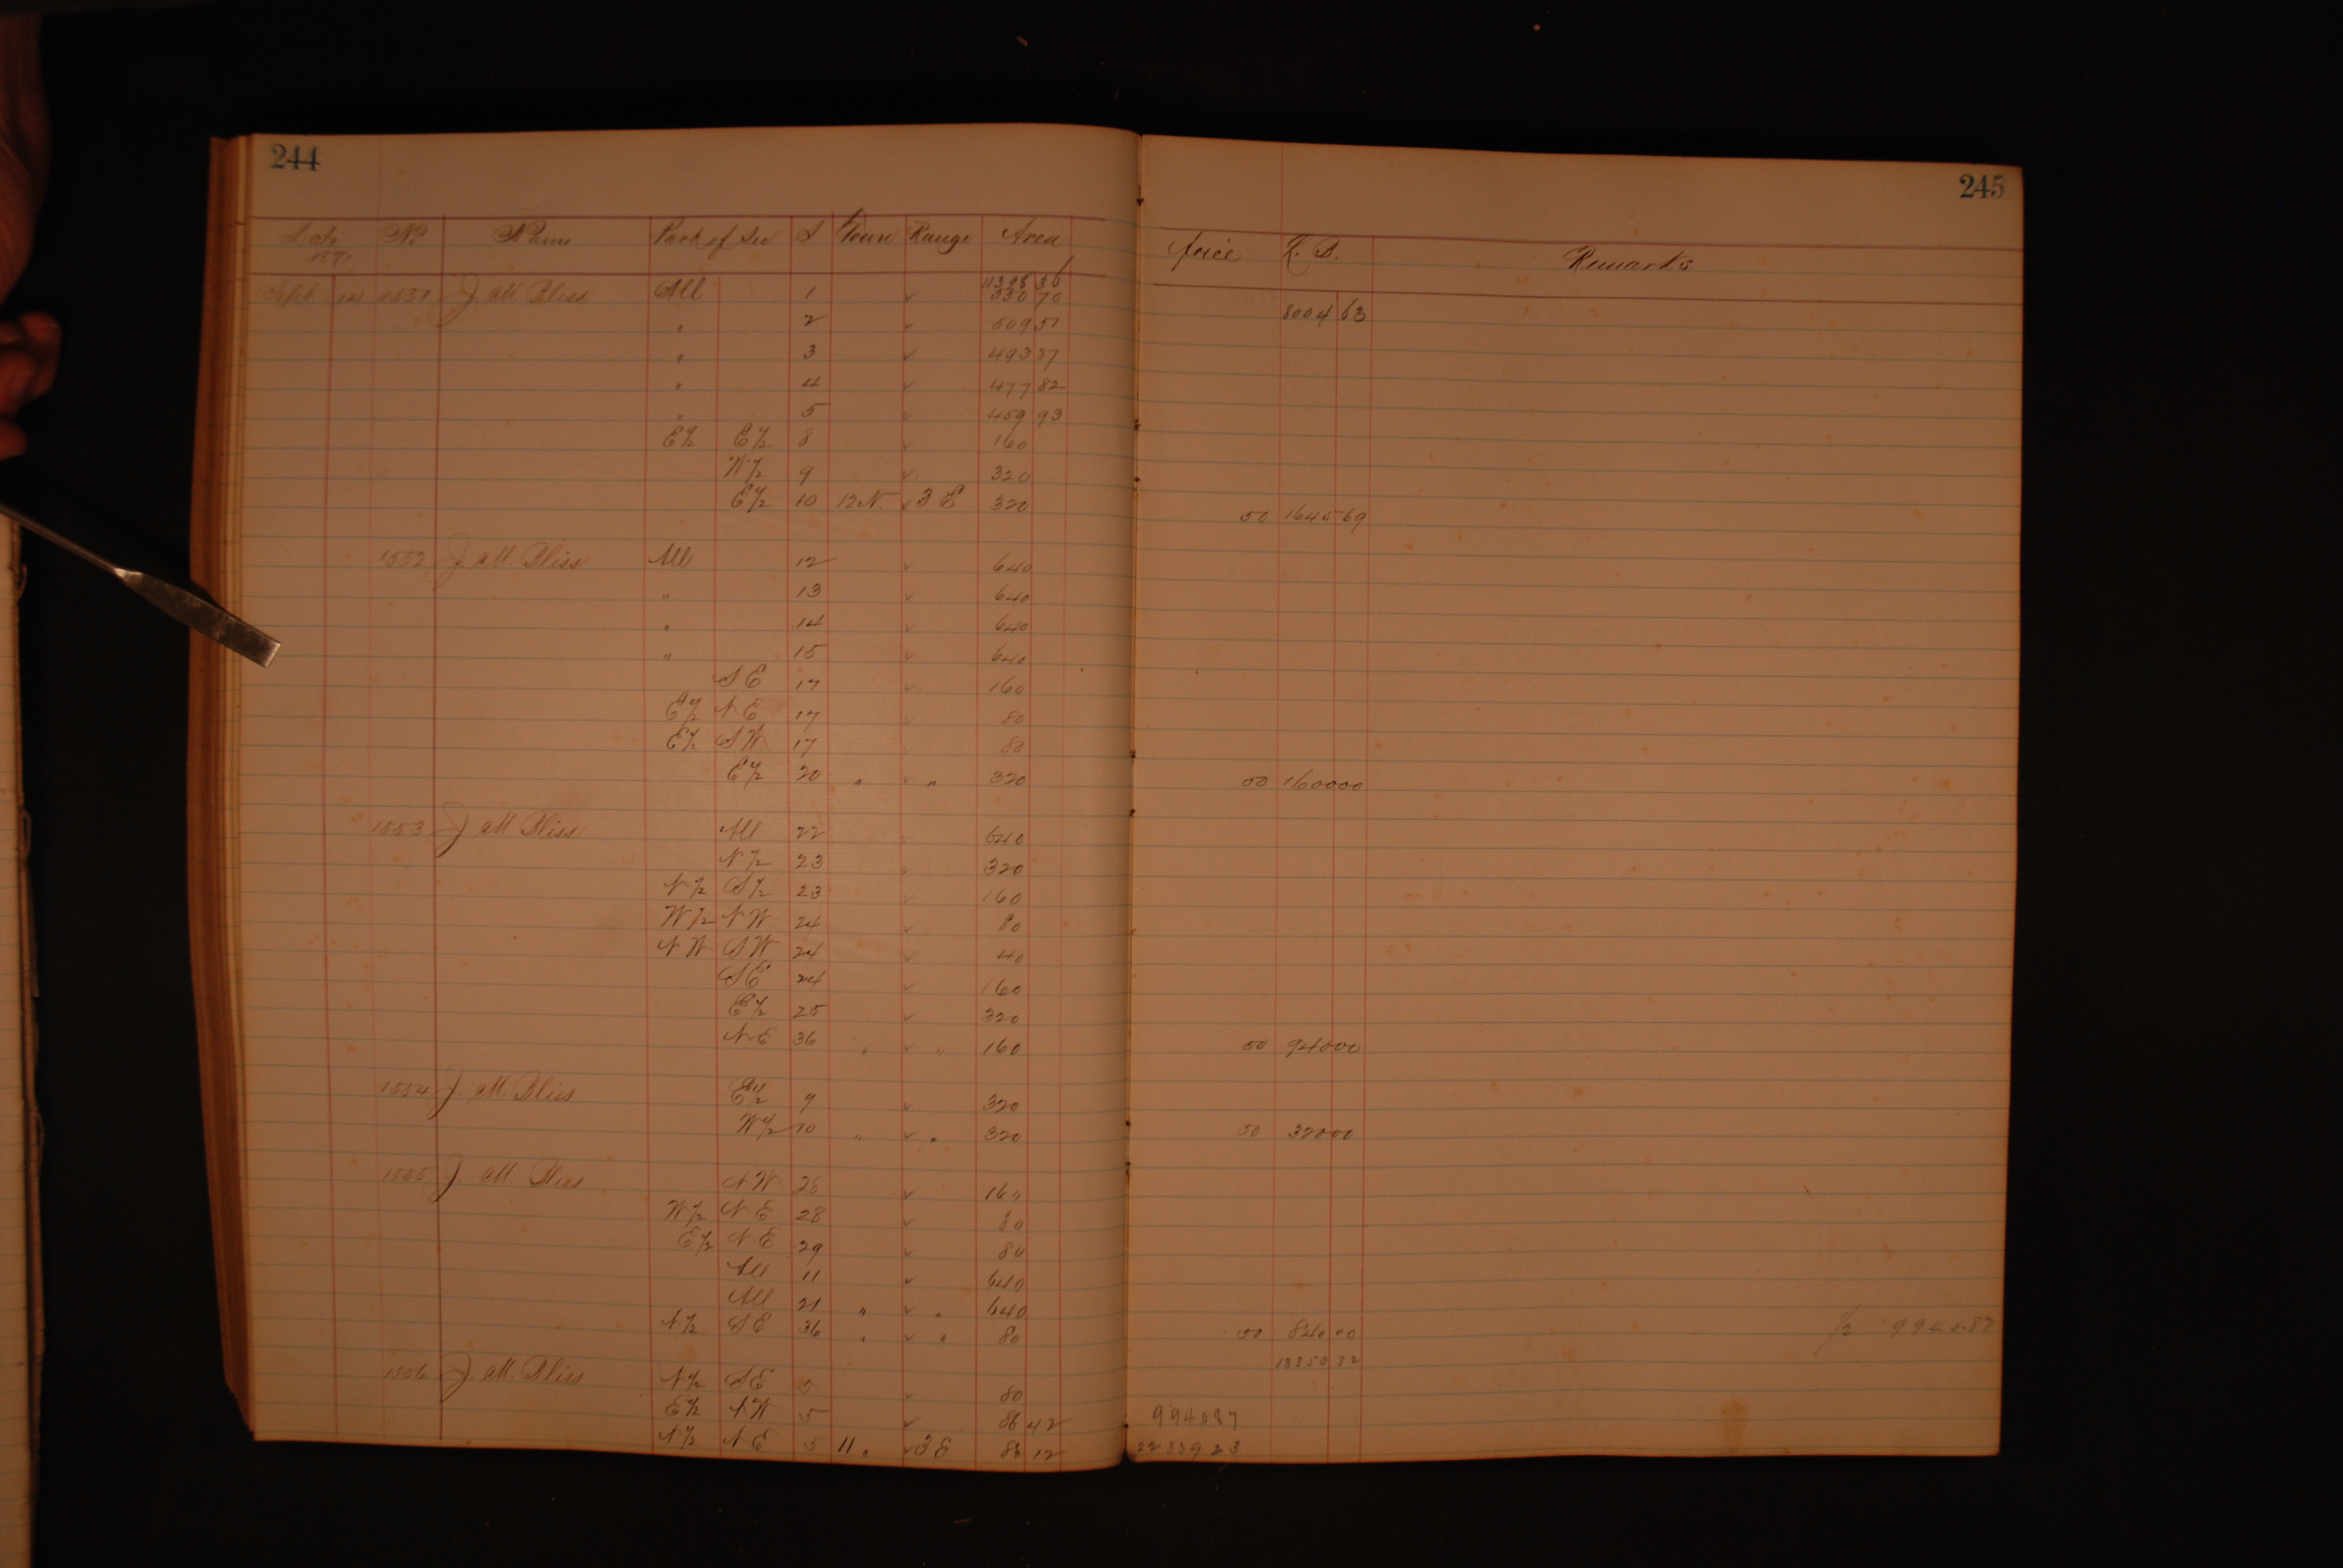 244
245
Date No Name Part of Sec S Town Range Area Price L. B. Remarks
11398 36
Sept 1551 J. M. Bliss All 1 ✓ 530 70 8004 63
" 2 ✓ 509 51
" 3 ✓ 493 37
" 4 ✓ 477 82
" 5 ✓ 459 93
E½ E½ 8 ✓ 160
W½ 9 ✓ 320
E½ 10 12 N. ✓ 3 E 320 50 1645 69
1552 J. M. Bliss All 12 ✓ 640
" 13 ✓ 640
" 14 ✓ 640
" 15 ✓ 640
SE 17 ✓ 160
E½ NE 17 ✓ 80
E½ SW 17 ✓ 80
E½ 20 " ✓ " 320 50 1600 00
1553 J. M. Bliss All 22 ✓ 640
N½ 23 ✓ 320
N½ S½ 23 ✓ 160
W½ NW 24 ✓ 80
NW SW 24 ✓ 40
SE 24 ✓ 160
E½ 25 ✓ 320
NE 36 " ✓ " 160 50 940 00
1554 J. M. Bliss E½ 9 ✓ 320
W½ 10 " ✓ " 320 50 320 00
1555 J. M. Bliss NW 28 ✓ 160
W½ NE 28 ✓ 80
E½ NE 29 ✓ 80
All 11 ✓ 640
All 21 " ✓ " 640
N½ SE 36 " ✓ " 80 50 840 00 ½ 9940.87
13350 32
1556 J. M. Bliss N½ SE 5 ✓ 80
E½ NW 5 ✓ 86 42 9940 87
N½ NE 5 11 " ✓ 3 E 86 12 22339 23